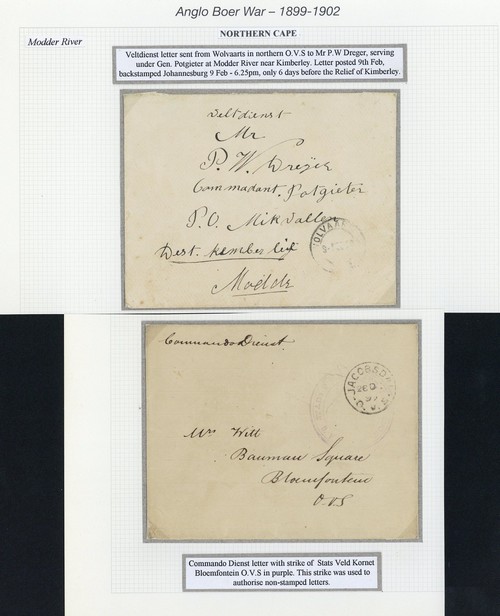 Anglo Boer War – 1899-1902
NORTHERN CAPE
Modder River
Veltdienst letter sent from Wolvaarts in northern O.V.S to Mr P.W Dreger, serving
under Gen. Potgieter at Modder River near Kimberley. Letter posted 9th Feb,
backstamped Johannesburg 9 Feb - 6.25pm, only 6 days before the Relief of Kimberley.
Veltdienst
Mr
P. W. Dreÿer
Commadant. Potgieter
P.O. Mik
Dest. kemberleij
Modde
Commando Dienst
JACOBSDAL
O.V.S.
Mrs Witt
Bauman Square
Bloemfontein
O.V.S
Commando Dienst letter with strike of Stats Veld Kornet
Bloemfontein O.V.S in purple. This strike was used to
authorise non-stamped letters.